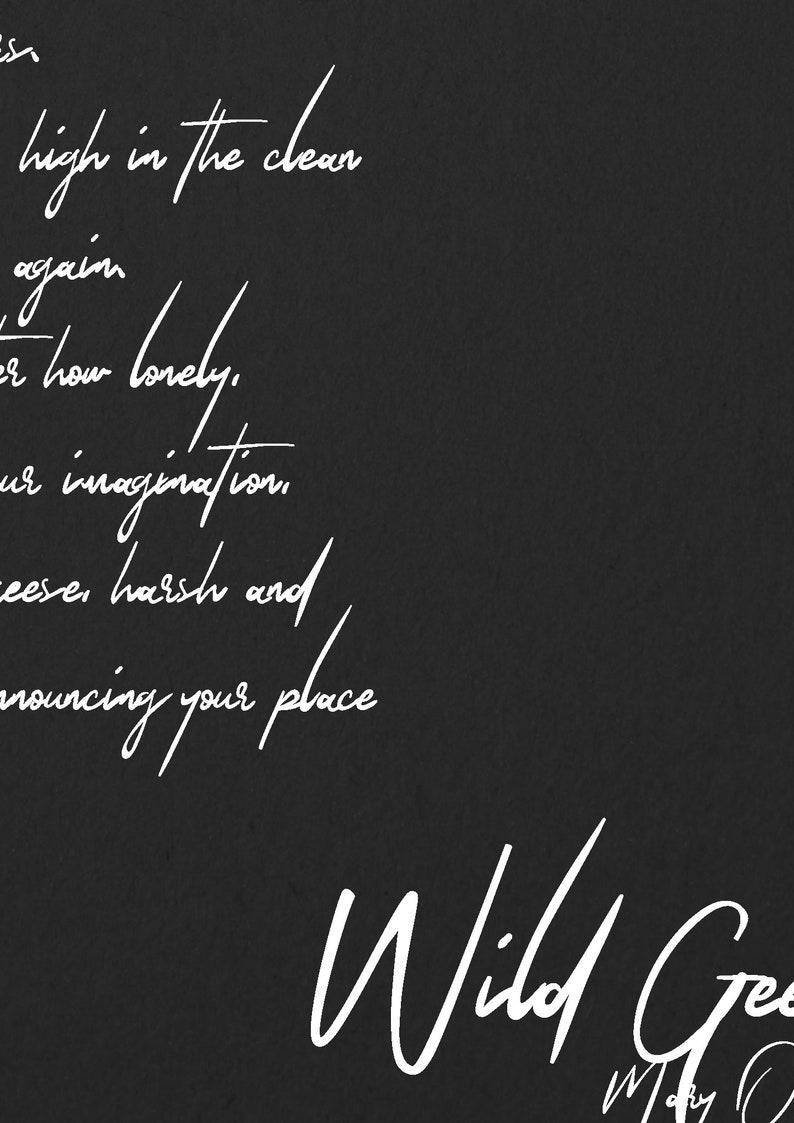 rs,
high in the clean
again.
er how lonely,
ur imagination,
eese, harsh and
nnouncing your place
Wild Gee
Mary O